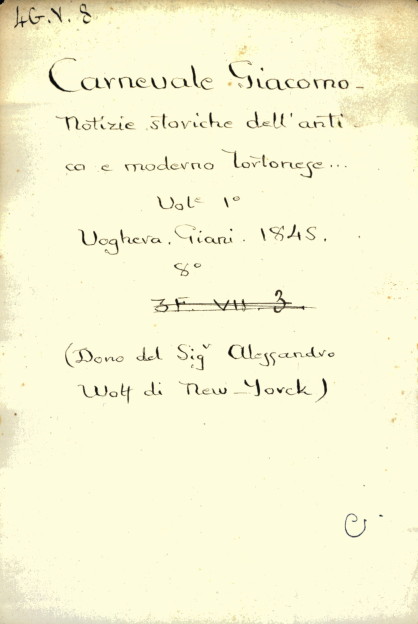 4G.V.8
Carnevale Giacomo-
Notizie storiche dell'anti-
co e moderno Tortonese...
Vole 1°
Voghera. Giani. 1845.
8°
3F. VII. 3.
(Dono del Sigr Alessandro
Wolf di New-Yorck)
C